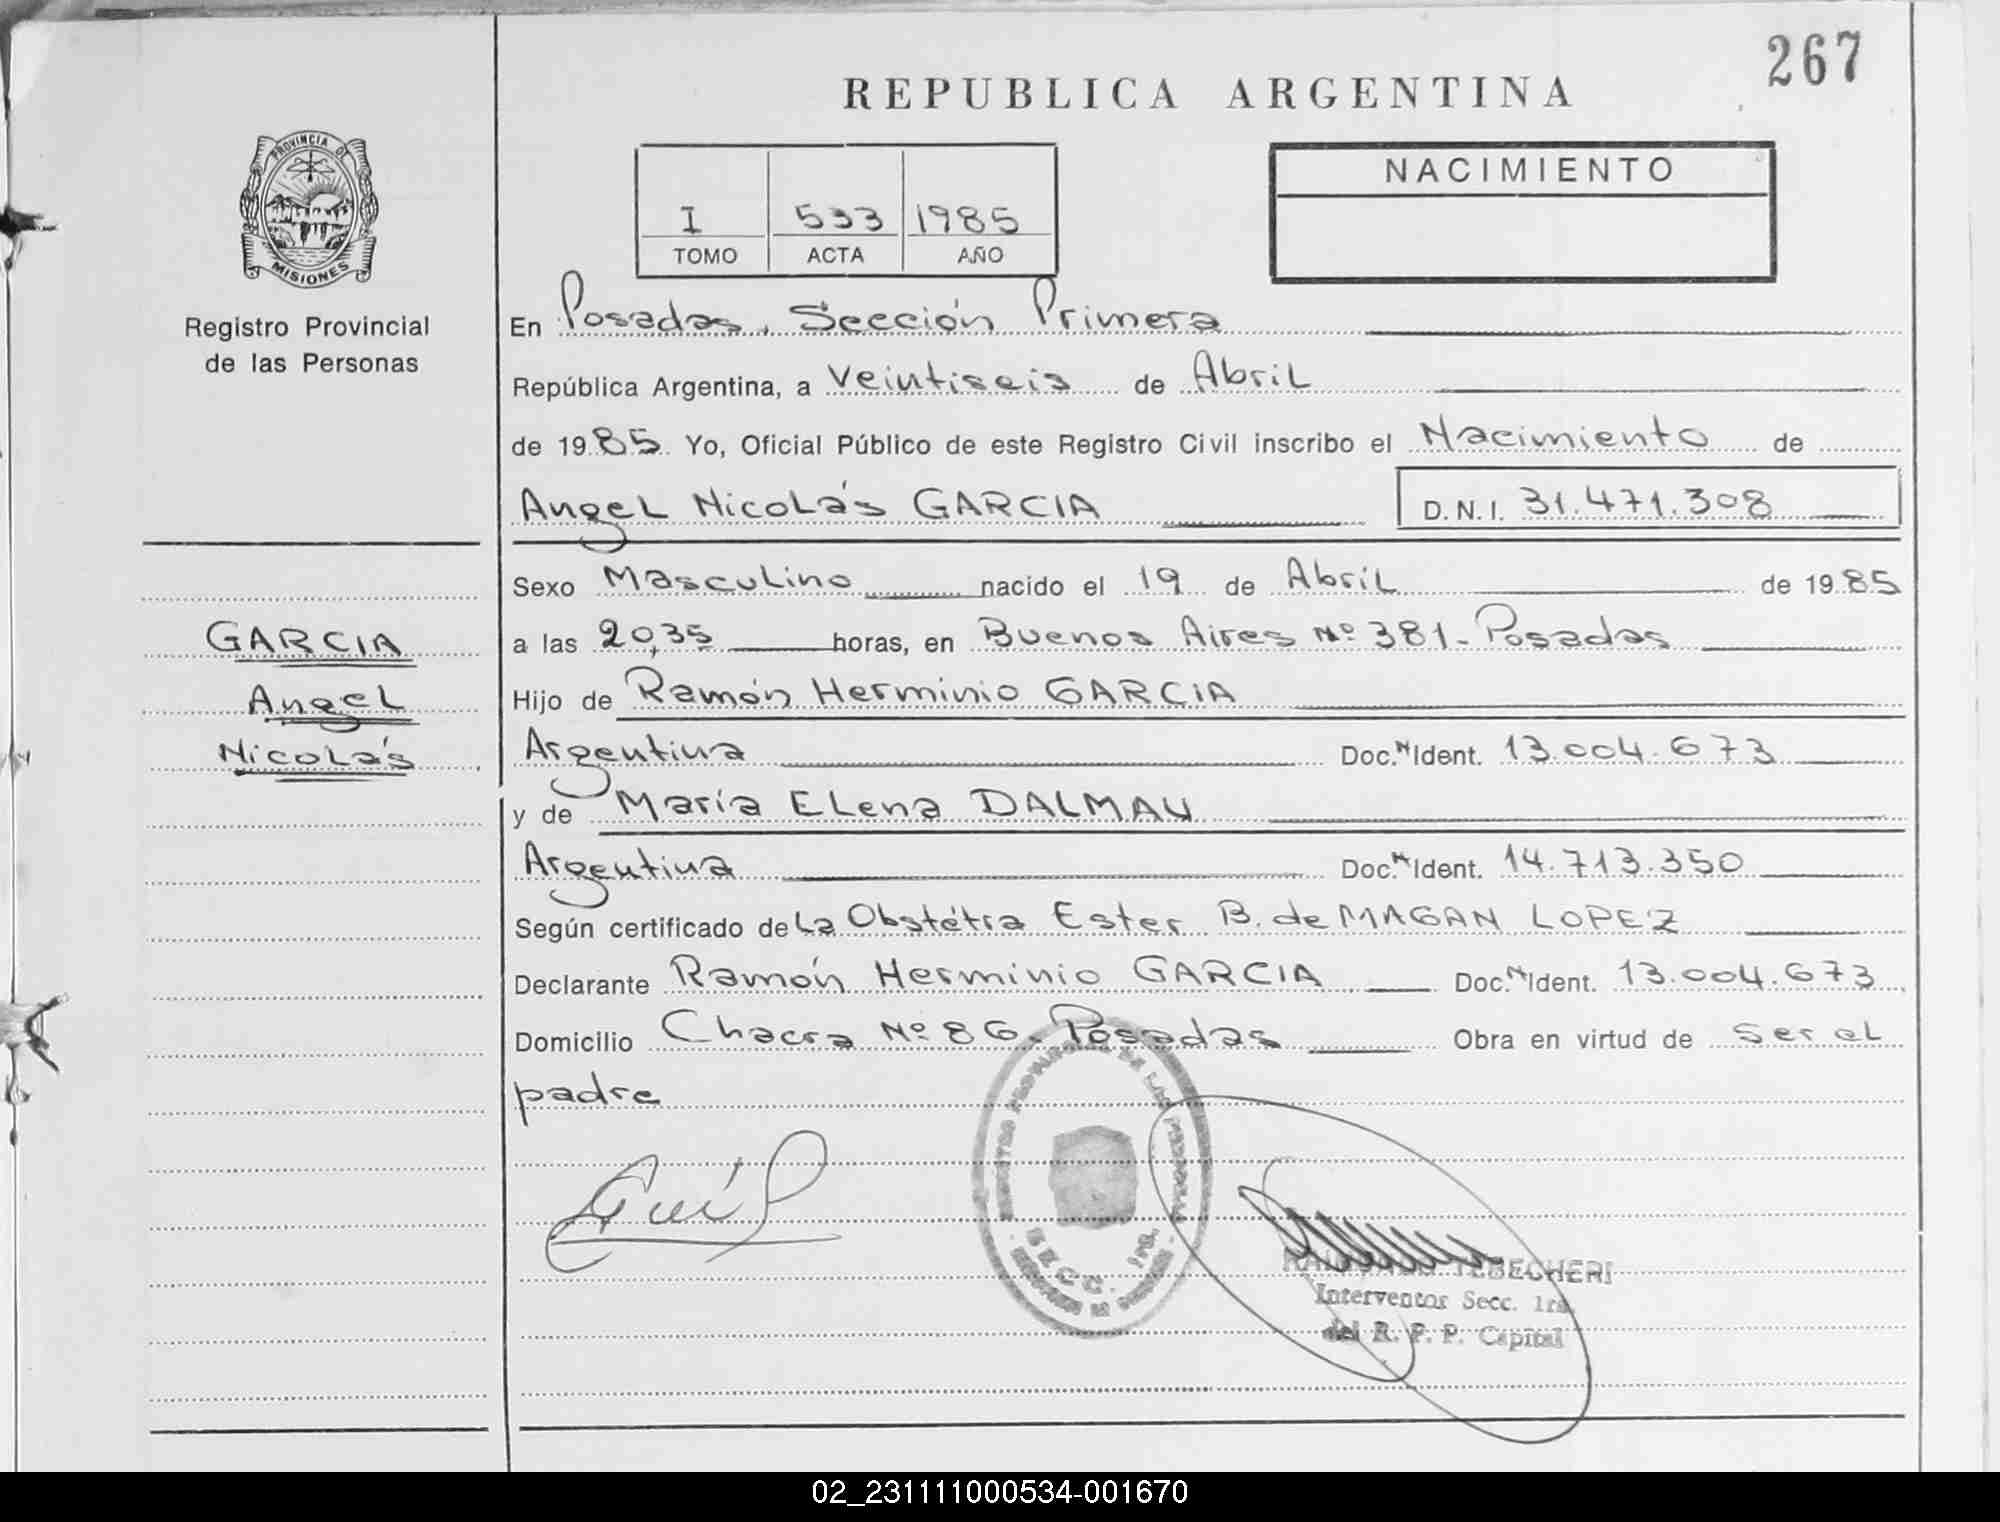 267
REPUBLICA ARGENTINA
PROVINCIA DE
MISIONES
Registro Provincial
de las Personas
I 533 1985
TOMO ACTA AÑO
NACIMIENTO
En Posadas, Sección Primera
República Argentina, a Veintiseis de Abril
de 1985 Yo, Oficial Público de este Registro Civil inscribo el Nacimiento de
Angel Nicolás GARCIA D.N.I. 31.471.308
Sexo Masculino nacido el 19 de Abril de 1985
a las 20,35 horas, en Buenos Aires Nº 381- Posadas
Hijo de Ramón Herminio GARCIA
Argentina Doc. N Ident. 13.004.673
y de María Elena DALMAU
Argentina Doc. N Ident. 14.713.350
Según certificado de La Obstétra Ester B. de MAGAN LOPEZ
Declarante Ramón Herminio GARCIA Doc. N Ident. 13.004.673
Domicilio Chacra Nº 86. Posadas Obra en virtud de ser el
padre
GARCIA
Angel
Nicolás
SECC. 1ra.
TEBECHERI
Interventor Secc. 1ra.
del R. P. P. Capital
02_231111000534-001670